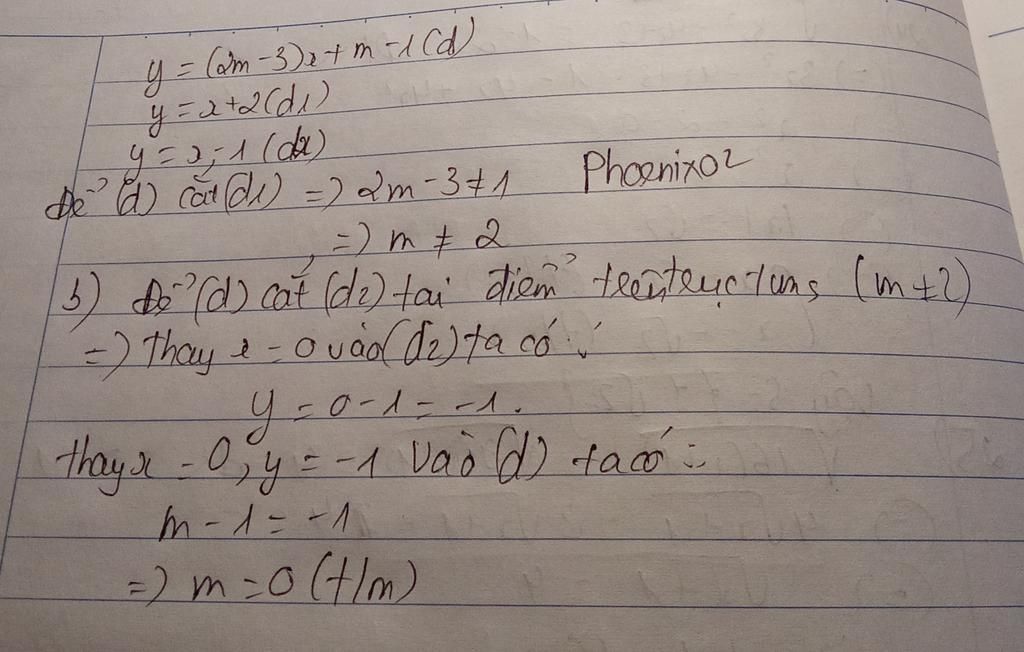 y = (2m-3)x + m-1 (d)
y = x+2 (d1)
y = x-1 (d2)
Để (d) cắt (d1) => 2m-3≠1 Phoenix02
=> m ≠ 2
b) Để (d) cắt (d2) tai điểm trên trục tung (m≠2)
=> Thay x = 0 vào (d2) ta có:
y = 0-1 = -1.
thay x = 0, y = -1 vào (d) ta có:
m-1 = -1
=> m = 0 (t/m)